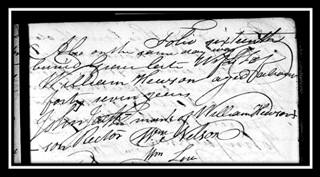 Folio sixteenth
Also on the same day was
buried Grace late Wife to
William Hewson aged
forty seven years
John mark of William Hewson
son Rector Wm Nelson
Wm Low